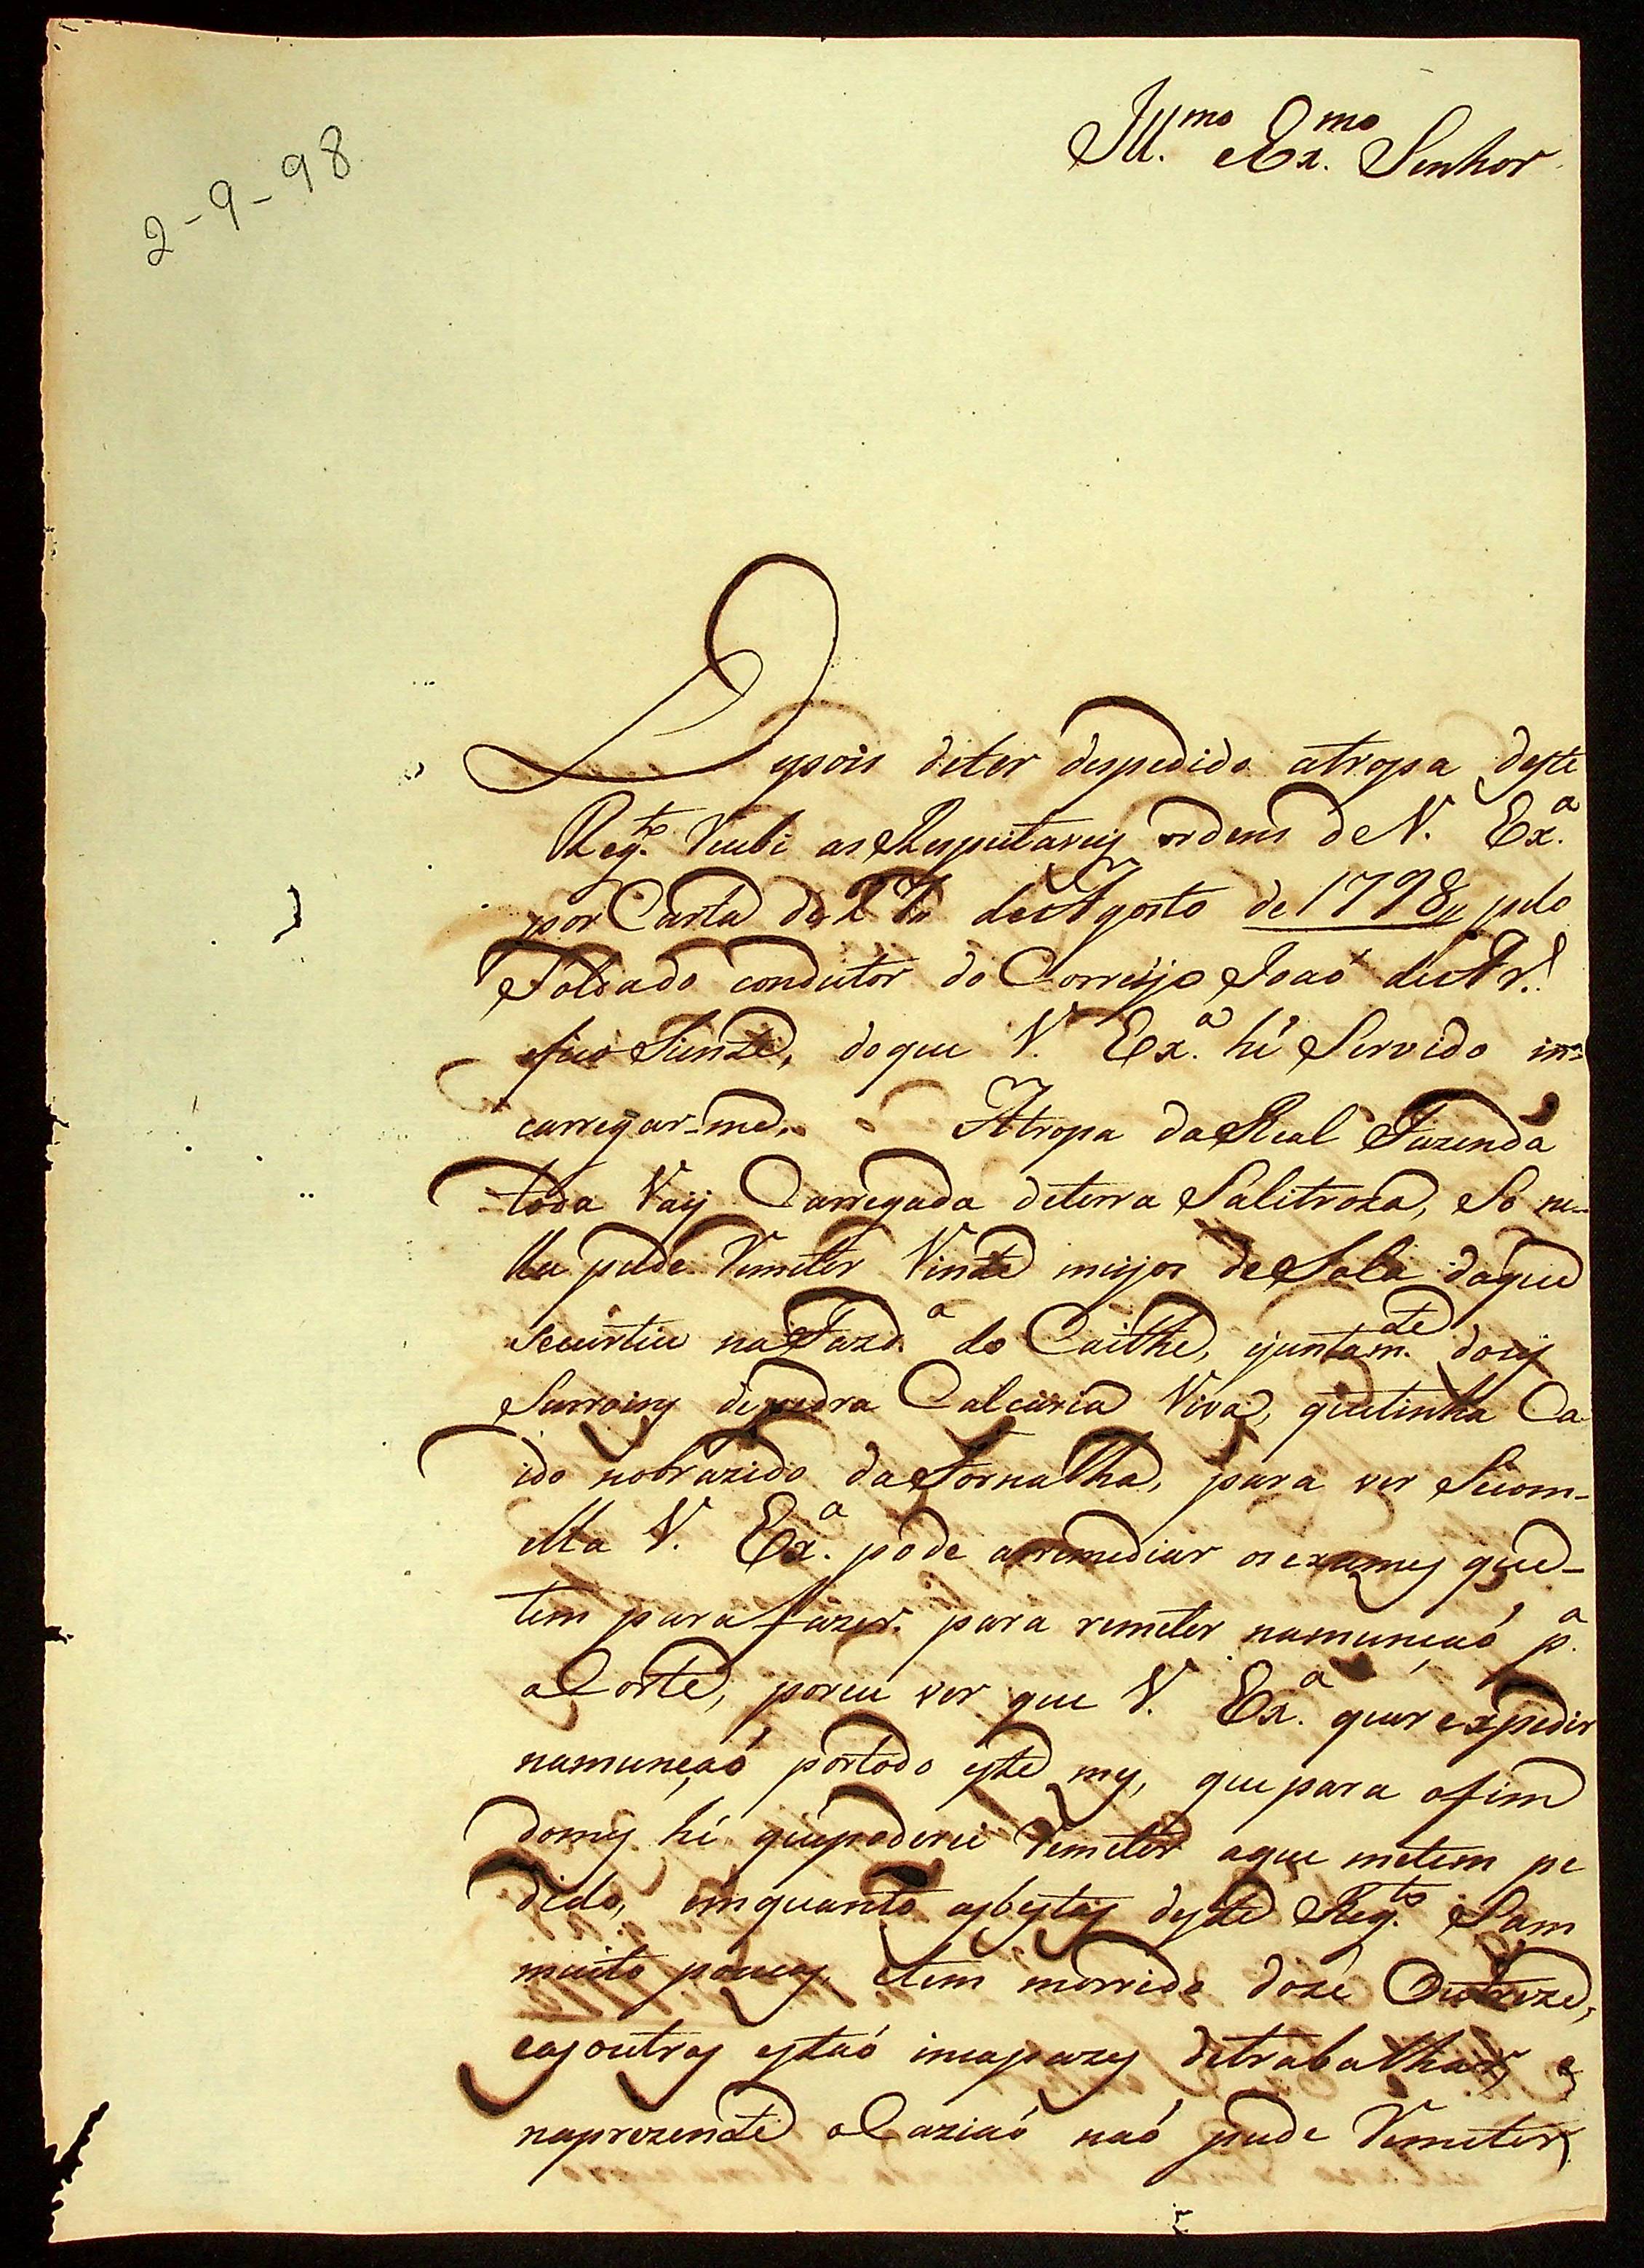 2-9-98
Ill.mo Ex.mo Senhor
Depois deter despedido atropa deste
Reg.to Recebi as Respeitaveis ordens de V. Ex.a
por Carta de 27 de Agosto de 1798,, pelo
Soldado condutor do Correijo Joaó de Ar.
fico Siente, doque V. Ex.a hé Servido in=
carregar-me. Atropa da Real Fazenda
toda Vaij Carregada deterra Salitroza, So ne-
lla pude Remeter Vinte meijos de Sola daque
securtiu na Fazd.a do Caithe, ejuntam.te doiz
Surroins depedra Calcaria Viva, quetinha Ca
ido nobrazido da Fornalha, para ver Secom-
ella V. Ex.a pode arremediar os exames que-
tem para fazer. para remeter namunçaó p.a
a Corte, poreu ver que V. Ex.a quer expedir
namunçaó portodo este mes, que para ofim
domes hé quepoderei Remeter aque metem pe
dido, emquanto asbestas deste Reg.to Sam
muito poucas, etem morrido doze Outreze,
easoutras estaó incapazes detrabalhar, e
naprezente oCaziaó naó pude Remeter